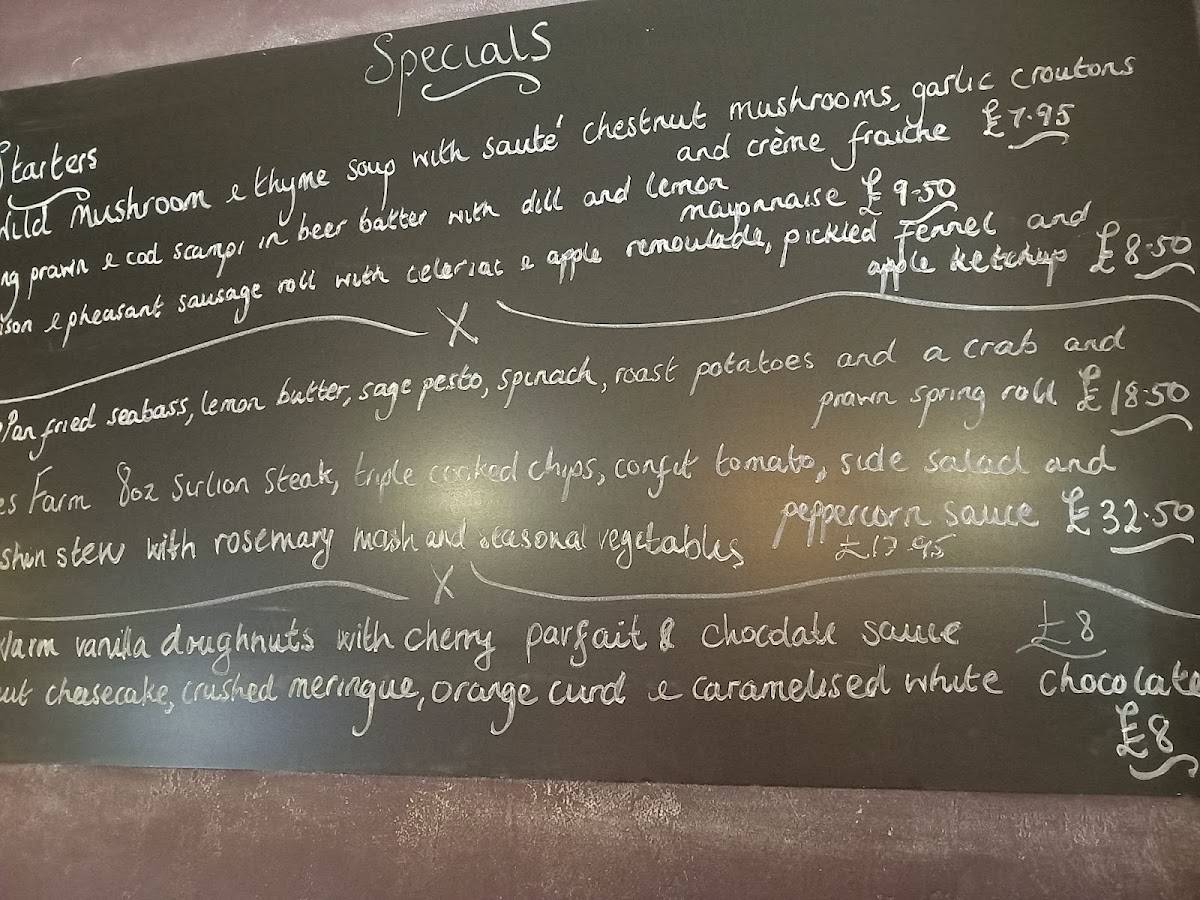 Specials
Starters
Wild Mushroom & thyme soup with sauté chestnut mushrooms, garlic croutons
and crème fraiche £7.95
ng prawn & cod scampi in beer batter with dill and lemon
mayonnaise £9.50
ison & pheasant sausage roll with celeriac & apple remoulade, pickled Fennel and
apple ketchup £8.50
X
Pan fried seabass, lemon butter, sage pesto, spinach, roast potatoes and a crab and
prawn spring roll £18.50
es Farm 8oz Sirlion Steak, triple cooked chips, confit tomato, side salad and
peppercorn sauce £32.50
shun stew with rosemary mash and seasonal vegetables £17.95
X
Warm vanilla doughnuts with cherry parfait & chocolate sauce £8
ut cheesecake, crushed meringue, orange curd & caramelised white chocolate
£8